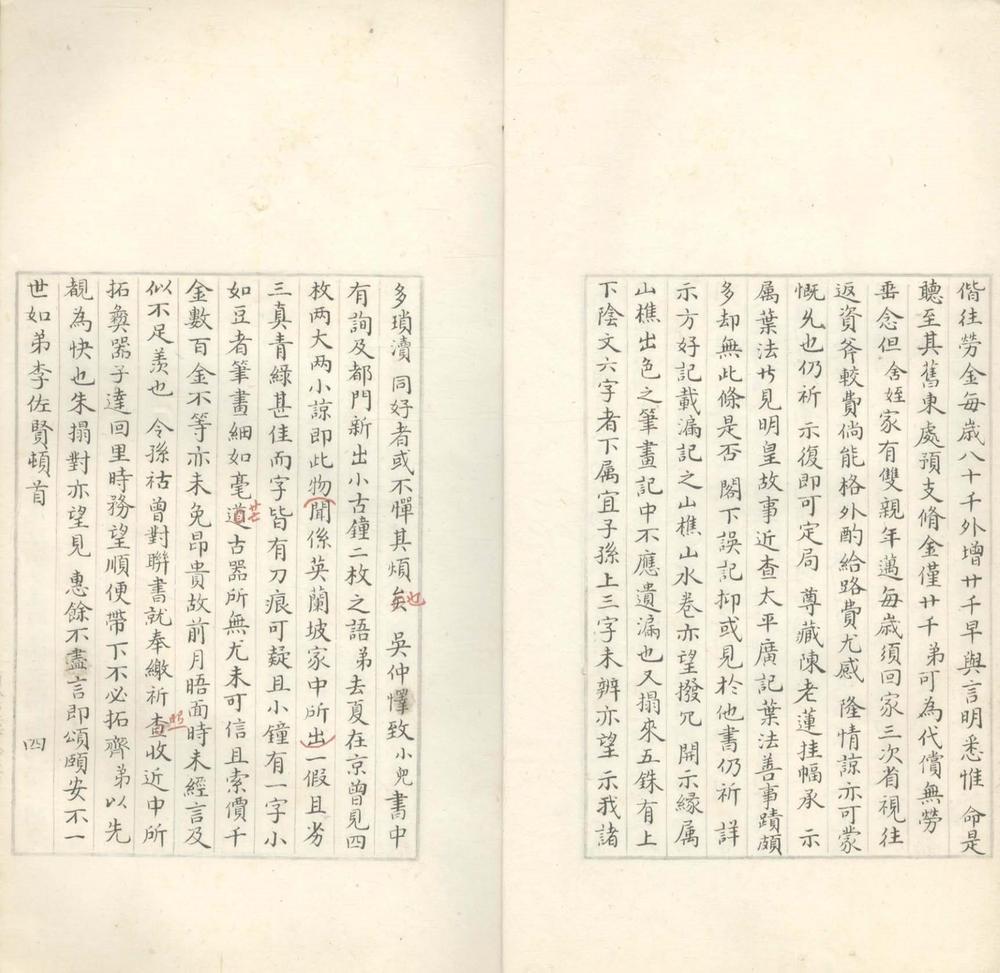 偕往勞金每歲八十千外增廿千早與言明悉惟　命是
聽至其舊東處預支脩金僅廿千弟可為代償無勞
垂念但舍姪家有雙親年邁每歲須回家三次省視往
返資斧較費倘能格外酌給路費尤感　隆情諒亦可蒙
慨允也仍祈　示復即可定局　尊藏陳老蓮挂幅承　示
属葉法廾見明皇故事近查太平廣記葉法善事蹟頗
多却無此條是否　閣下誤記抑或見於他書仍祈　詳
示方好記載漏記之山樵山水卷亦望撥冗　開示緣属
山樵出色之筆畫記中不應遺漏也又搨來五銖有上
下陰文六字者下属宜子孫上三字未辨亦望　示我諸
多瑣瀆　同好者或不憚其煩矣也　吳仲懌致小兒書中
有詢及都門新出小古鐘二枚之語弟去夏在京曾見四
枚两大两小諒即此物聞係英蘭坡家中所出一假且劣
三真青綠甚佳而字皆有刀痕可疑且小鐘有一字小
如豆者筆畫細如毫芒道古器所無尤未可信且索價千
金數百金不等亦未免昂貴故前月晤面時未經言及
似不足羨也　令孫祜曾對聯書就奉繳祈查照收近中所
拓彝器子達回里時務望順便帶下不必拓齊弟以先
覩為快也朱搨對亦望見　惠餘不盡言即頌頤安不一
世如弟李佐賢頓首
四